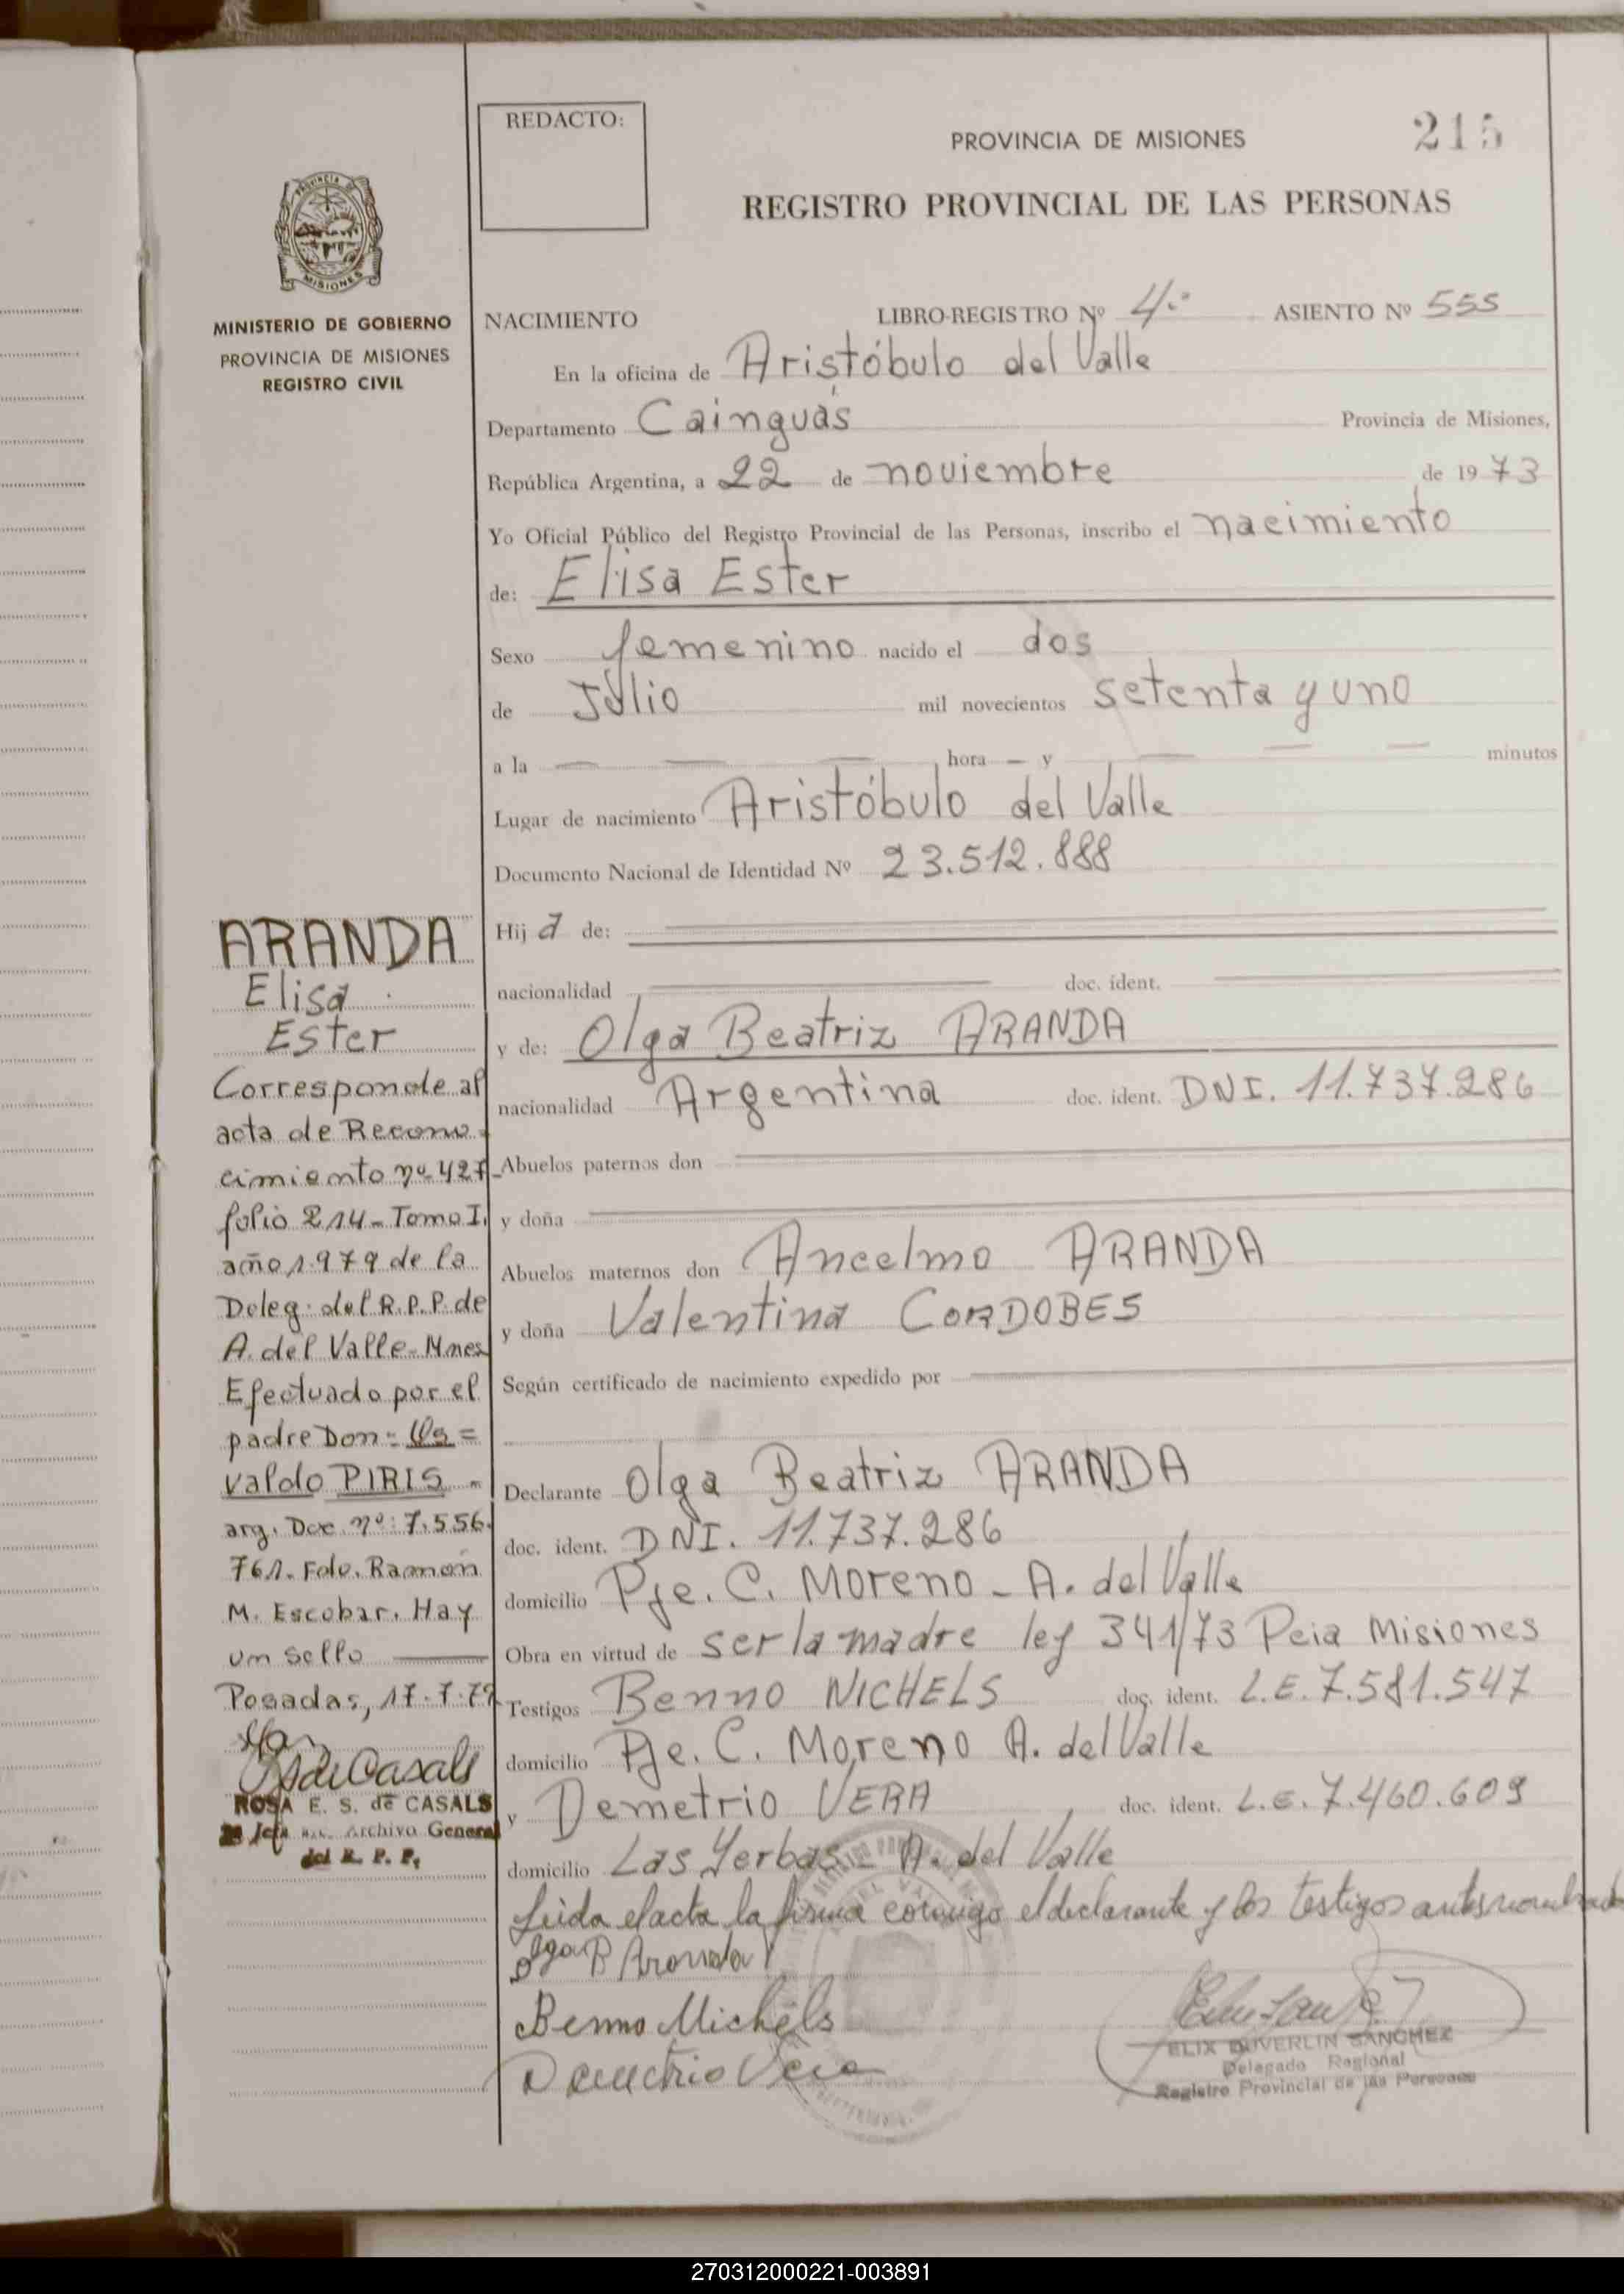 REDACTO:
PROVINCIA DE MISIONES
215
REGISTRO PROVINCIAL DE LAS PERSONAS
PROVINCIA DE
MISIONES
MINISTERIO DE GOBIERNO
PROVINCIA DE MISIONES
REGISTRO CIVIL
NACIMIENTO LIBRO-REGISTRO Nº 4.º ASIENTO Nº 555
En la oficina de Aristóbulo del Valle
Departamento Cainguás Provincia de Misiones,
República Argentina, a 22 de noviembre de 1973
Yo Oficial Público del Registro Provincial de las Personas, inscribo el nacimiento
de: Elisa Ester
Sexo femenino nacido el dos
de Julio mil novecientos setenta y uno
a la — — — hora — y — — — minutos
Lugar de nacimiento Aristóbulo del Valle
Documento Nacional de Identidad Nº 23.512.888
Hija de:
nacionalidad doc. ident.
y de: Olga Beatriz ARANDA
nacionalidad Argentina doc. ident. DNI. 11.737.286
Abuelos paternos don
y doña
Abuelos maternos don Ancelmo ARANDA
y doña Valentina CORDOBES
Según certificado de nacimiento expedido por
Declarante Olga Beatriz ARANDA
doc. ident. DNI. 11.737.286
domicilio Pje. C. Moreno - A. del Valle
Obra en virtud de ser la madre ley 341/73 Pcia Misiones
Testigos Benno NICHELS doc. ident. L.E. 7.581.547
domicilio Pje. C. Moreno A. del Valle
y Demetrio VERA doc. ident. L.E. 7.460.609
domicilio Las Yerbas - A. del Valle
Leida el acta la firma conmigo el declarante y los testigos antes nombrados
Olga B Aranda
Benno Michels
Demetrio Vera
FELIX DUVERLIN SANCHEZ
Delegado Regional
Registro Provincial de las Personas
ARANDA
Elisa
Ester
Corresponde al
acta de Recono-
cimiento nº 427-
folio 214- Tomo I.
año 1.979 de la
Deleg. del R.P.P. de
A. del Valle- Mnes
Efectuado por el
padre Don: Os=
valdo PIRIS -
arg. Doc. nº: 7.556.
761. Fdo. Ramón
M. Escobar. Hay
un sello
Posadas, 17.7.79
de Casals
ROSA E. S. de CASALS
Jefa Archivo General
del R. P. P.
270312000221-003891